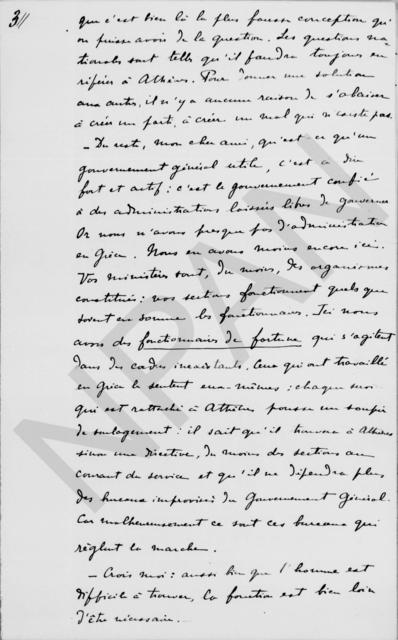 3//
que c'est bien là la plus fausse conception qu'
on puisse avoir de la question. Les questions na-
tionales sont telles qu'il faudra toujours en
référer à Athènes. Pour donner une solution
aux autres, il n'y a aucune raison de s'abaisser
à créer un fort, à créer un mal qui n'existe pas.
– Du reste, mon cher ami, qu'est ce qu'un
gouvernement général utile, c'est à dire
fort et actif : c'est le gouvernement confié
à des administrations laissées libres de gouverner
Or nous n'avons presque pas d'administration
en Grèce. Nous en avons moins encore ici.
Vos ministères sont, du moins, des organismes
constitués : vos sections fonctionnent quels que
soient en somme les fonctionnaires. Ici nous
avons des fonctionnaires de fortune qui s'agitent
dans des cadres inexistants. Ceux qui ont travaillé
en Grèce le sentent eux-mêmes : chaque
qui est rattaché à Athènes pousse un soupir
de soulagement : il sait qu'il trouvera à Athènes
sinon une directive, du moins des sections au
courant du service et qu'il ne dépendra plus
des bureaux improvisés du Gouvernement Général.
Car malheureusement ce sont ces bureaux qui
règlent la marche.
– Crois moi : aussi bien que l'homme est
difficile à trouver, la fonction est bien loin
d'être nécessaire.
NPAN